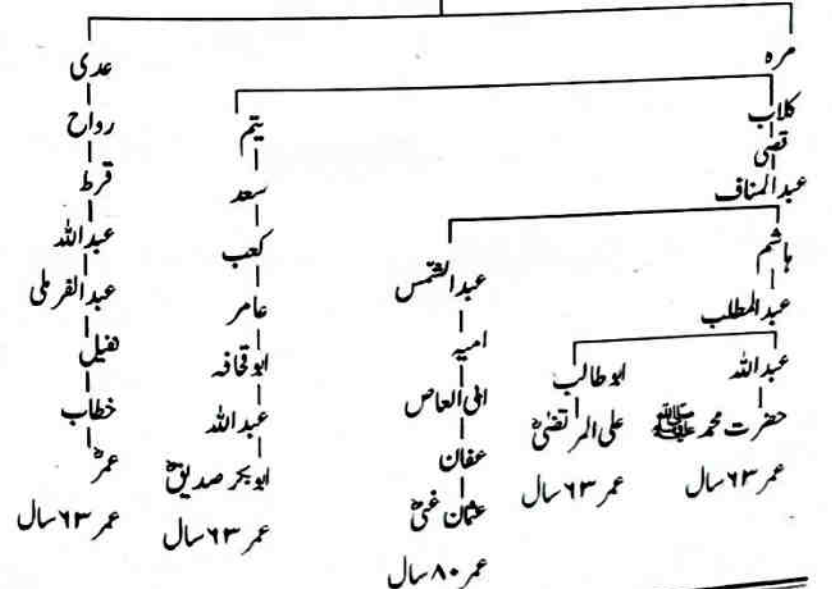 مرہ
کلاب
قصی
عبدالمناف
ہاشم
عبدالمطلب
عبداللہ
حضرت محمد ﷺ
عمر ۶۳ سال
ابوطالب
علی المرتضیٰؓ
عمر ۶۳ سال
عبدالشمس
امیہ
ابی العاص
عفان
عثمان غنیؓ
عمر ۸۰ سال
یتم
سعد
کعب
عامر
ابوقحافہ
عبداللہ
ابوبکر صدیقؓ
عمر ۶۳ سال
عدی
رواح
قرط
عبداللہ
عبدالفرملی
نفیل
خطاب
عمرؓ
عمر ۶۳ سال